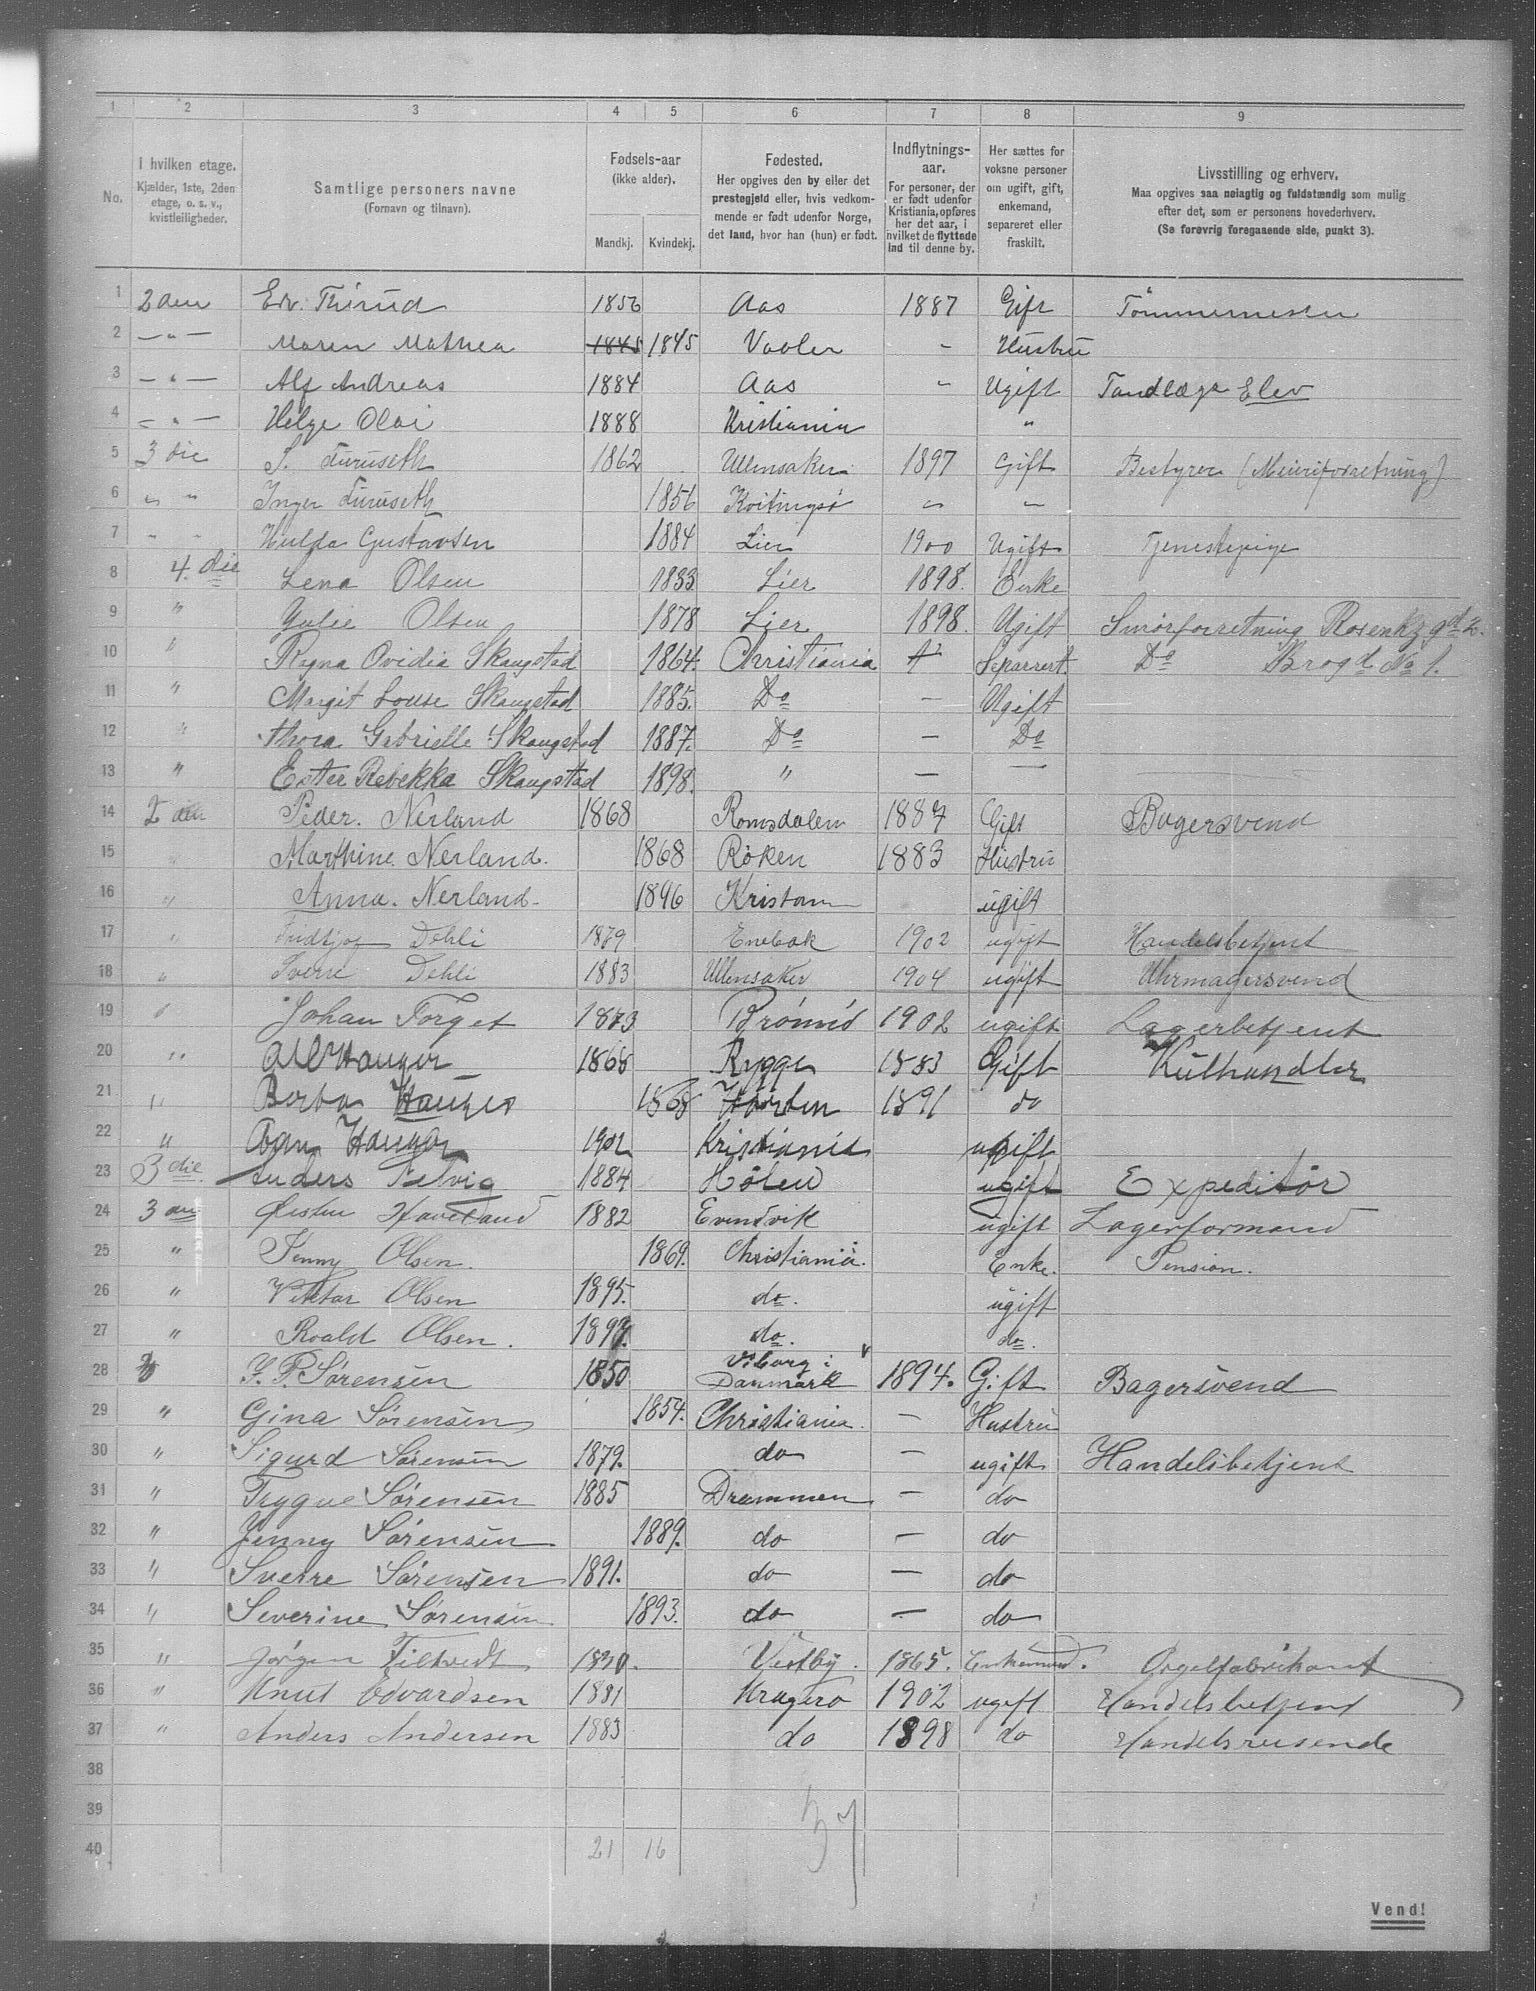 1 2 3 4 5 6 7 8 9
No.
I hvilken etage.
Kjælder, 1ste, 2den
etage, o. s. v.,
kvistleiligheder.
Samtlige personers navne
(Fornavn og tilnavn).
Fødsels-aar
(ikke alder).
Mandkj. Kvindekj.
Fødested.
Her opgives den by eller det
prestegjeld eller, hvis vedkom-
mende er født udenfor Norge,
det land, hvor han (hun) er født.
Indflytnings-
aar.
For personer, der
er født udenfor
Kristiania, opføres
her det aar, i
hvilket de flyttede
ind til denne by.
Her sættes for
voksne personer
om ugift, gift,
enkemand,
separeret eller
fraskilt.
Livsstilling og erhverv.
Maa opgives saa nøiagtig og fuldstændig som mulig
efter det, som er personens hovederhverv.
(Se forøvrig foregaaende side, punkt 3).
1 2den Edv. Thirud 1856 Aas 1887 Gift Tømmermester
2 — " — Maren Mathea 1845 1845 Vaaler " Hustru
3 — " — Alf Andreas 1884 Aas " Ugift Tandlæge Elev
4 — " — Helge Olai 1888 Kristiania "
5 3die S. Furuseth 1862 Ullensaker 1897 Gift Bestyrer (Meieriforretning)
6 " " Inger Furuseth 1856 Kvitingsø " "
7 " " Hulda Gustavsen 1884 Lier 1900 Ugift Tjenestepige
8 4. die Lena Olsen 1833 Lier 1898. Enke
9 " Julie Olsen 1878 Lier 1898. Ugift Smørforretning Rosenkz gd 2.
10 " Ragna Ovidia Skaugstad 1864. Christiania Separert. Do Brogd No 1.
11 " Margit Louise Skaugstad 1885. Do — Ugift
12 " Thora Gabrielle Skaugstad 1887. Do — Do
13 " Ester Rebekka Skaugstad 1898. " — —
14 2den Peder. Nerland 1868 Romsdalen 1887 Gift Bagersvend
15 " Marthine Nerland. 1868 Røken 1883 Hustru
16 " Anna. Nerland 1896 Kristania ugift
17 " Fridtjof Dehli 1879 Enebak 1902 ugift Handelsbetjent
18 " Sverre Dehli 1883 Ullensaker 1904 ugift Uhrmagersvend
19 " Johan Torget 1873 Brønnø 1902 ugift Lagerbetjent
20 " Hauger 1868 Rygge 1883 Gift Kulhandler
21 " Berta Hauger 1868 Horten 1891 do
22 " Hauger 1902 Kristiania ugift
23 3die. Anders 1884 Hølen ugift Expeditør
24 3die Øisten Haveland 1882 Evindvik ugift Lagerformand
25 " Jenny Olsen. 1869. Christiania. Enke. Pension.
26 " Viktor Olsen 1895. do. ugift
27 " Roald Olsen. 1897. do. do.
28 J. P. Sørensen 1850 Viborg i Danmark 1894. Gift Bagersvend
29 " Gina Sørensen 1854. Christiania. — Hustru
30 " Sigurd Sørensen 1879. do — ugift Handelsbetjent
31 " Trygve Sørensen 1885 Drammen — do
32 " Jenny Sørensen 1889. do — do
33 " Sverre Sørensen 1891. do — do
34 " Severine Sørensen 1893. do — do
35 " Jørgen Tiltvedt 1840. Vestby. 1865. Enkemand. Orgelfabrikant
36 " Knut Edvardsen 1881 Kragerø 1902 ugift Handelsbetjent
37 " Anders Andersen 1883 do 1898 do Handelsreisende
38
39
40 21 16 37
Vend!